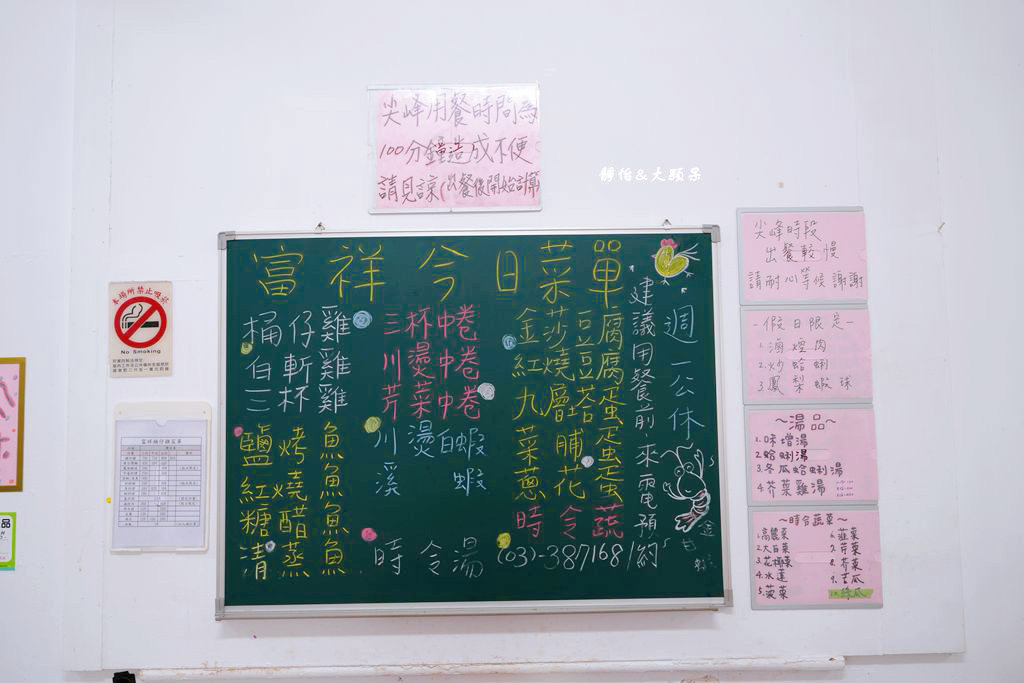 尖峰用餐時間為
100分鐘造成不便
請見諒(出餐後開始計算
靜怡&大顆呆
富祥今日菜單
桶仔雞
白斬雞
三杯雞
鹽烤魚
紅燒魚
糖醋魚
清蒸魚
三杯中卷
川燙中卷
芹菜中卷
川燙白蝦
溪蝦
時令湯
金莎豆腐
紅燒豆腐
九層塔蛋
菜脯蛋
蔥花蛋
時令蔬菜
建議用餐前來電預約
(03)-3871681
週一公休
本場所禁止吸菸
No Smoking
尖峰時段
出餐較慢
請耐心等候 謝謝
-假日限定-
2.炒蛤蜊
3.鳳梨蝦球
~湯品~
1.味增湯
2.蛤蜊湯
3.冬瓜蛤蜊湯
4.芥菜雞湯
~時令蔬菜~
1.高麗菜
2.大白菜
3.花椰菜
4.水蓮
5.菠菜
6.韭菜
7.芹菜
8.芥菜
9.苦瓜
10.絲瓜
品